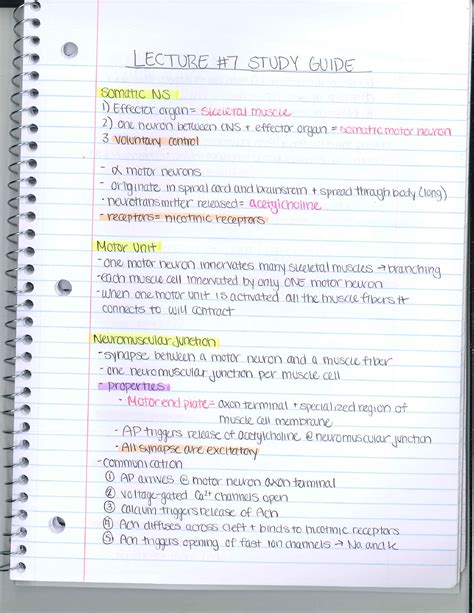 LECTURE #7 STUDY GUIDE
Somatic NS
1) Effector organ = skeletal muscle
2) one neuron between CNS + effector organ = somatic motor neuron
3. voluntary control
- α motor neurons
- originate in spinal cord and brainstem + spread through body (long)
- neurotransmitter released = acetylcholine
- receptors = nicotinic receptors
Motor Unit
- one motor neuron innervates many skeletal muscles → branching
- each muscle cell innervated by only ONE motor neuron
- when one motor unit is activated all the muscle fibers it
connects to will contract
Neuromuscular Junction
- synapse between a motor neuron and a muscle fiber
- one neuromuscular junction per muscle cell
- properties
- Motor end plate = axon terminal + specialized region of
muscle cell membrane
- AP triggers release of acetylcholine @ neuromuscular junction
- All synapse are excitatory
- communication
① AP arrives @ motor neuron axon terminal
② voltage-gated Ca²⁺ channels open
③ calcium triggers release of Ach
④ Ach diffuses across cleft + binds to nicotinic receptors
⑤ Ach triggers opening of fast ion channels → Na and K